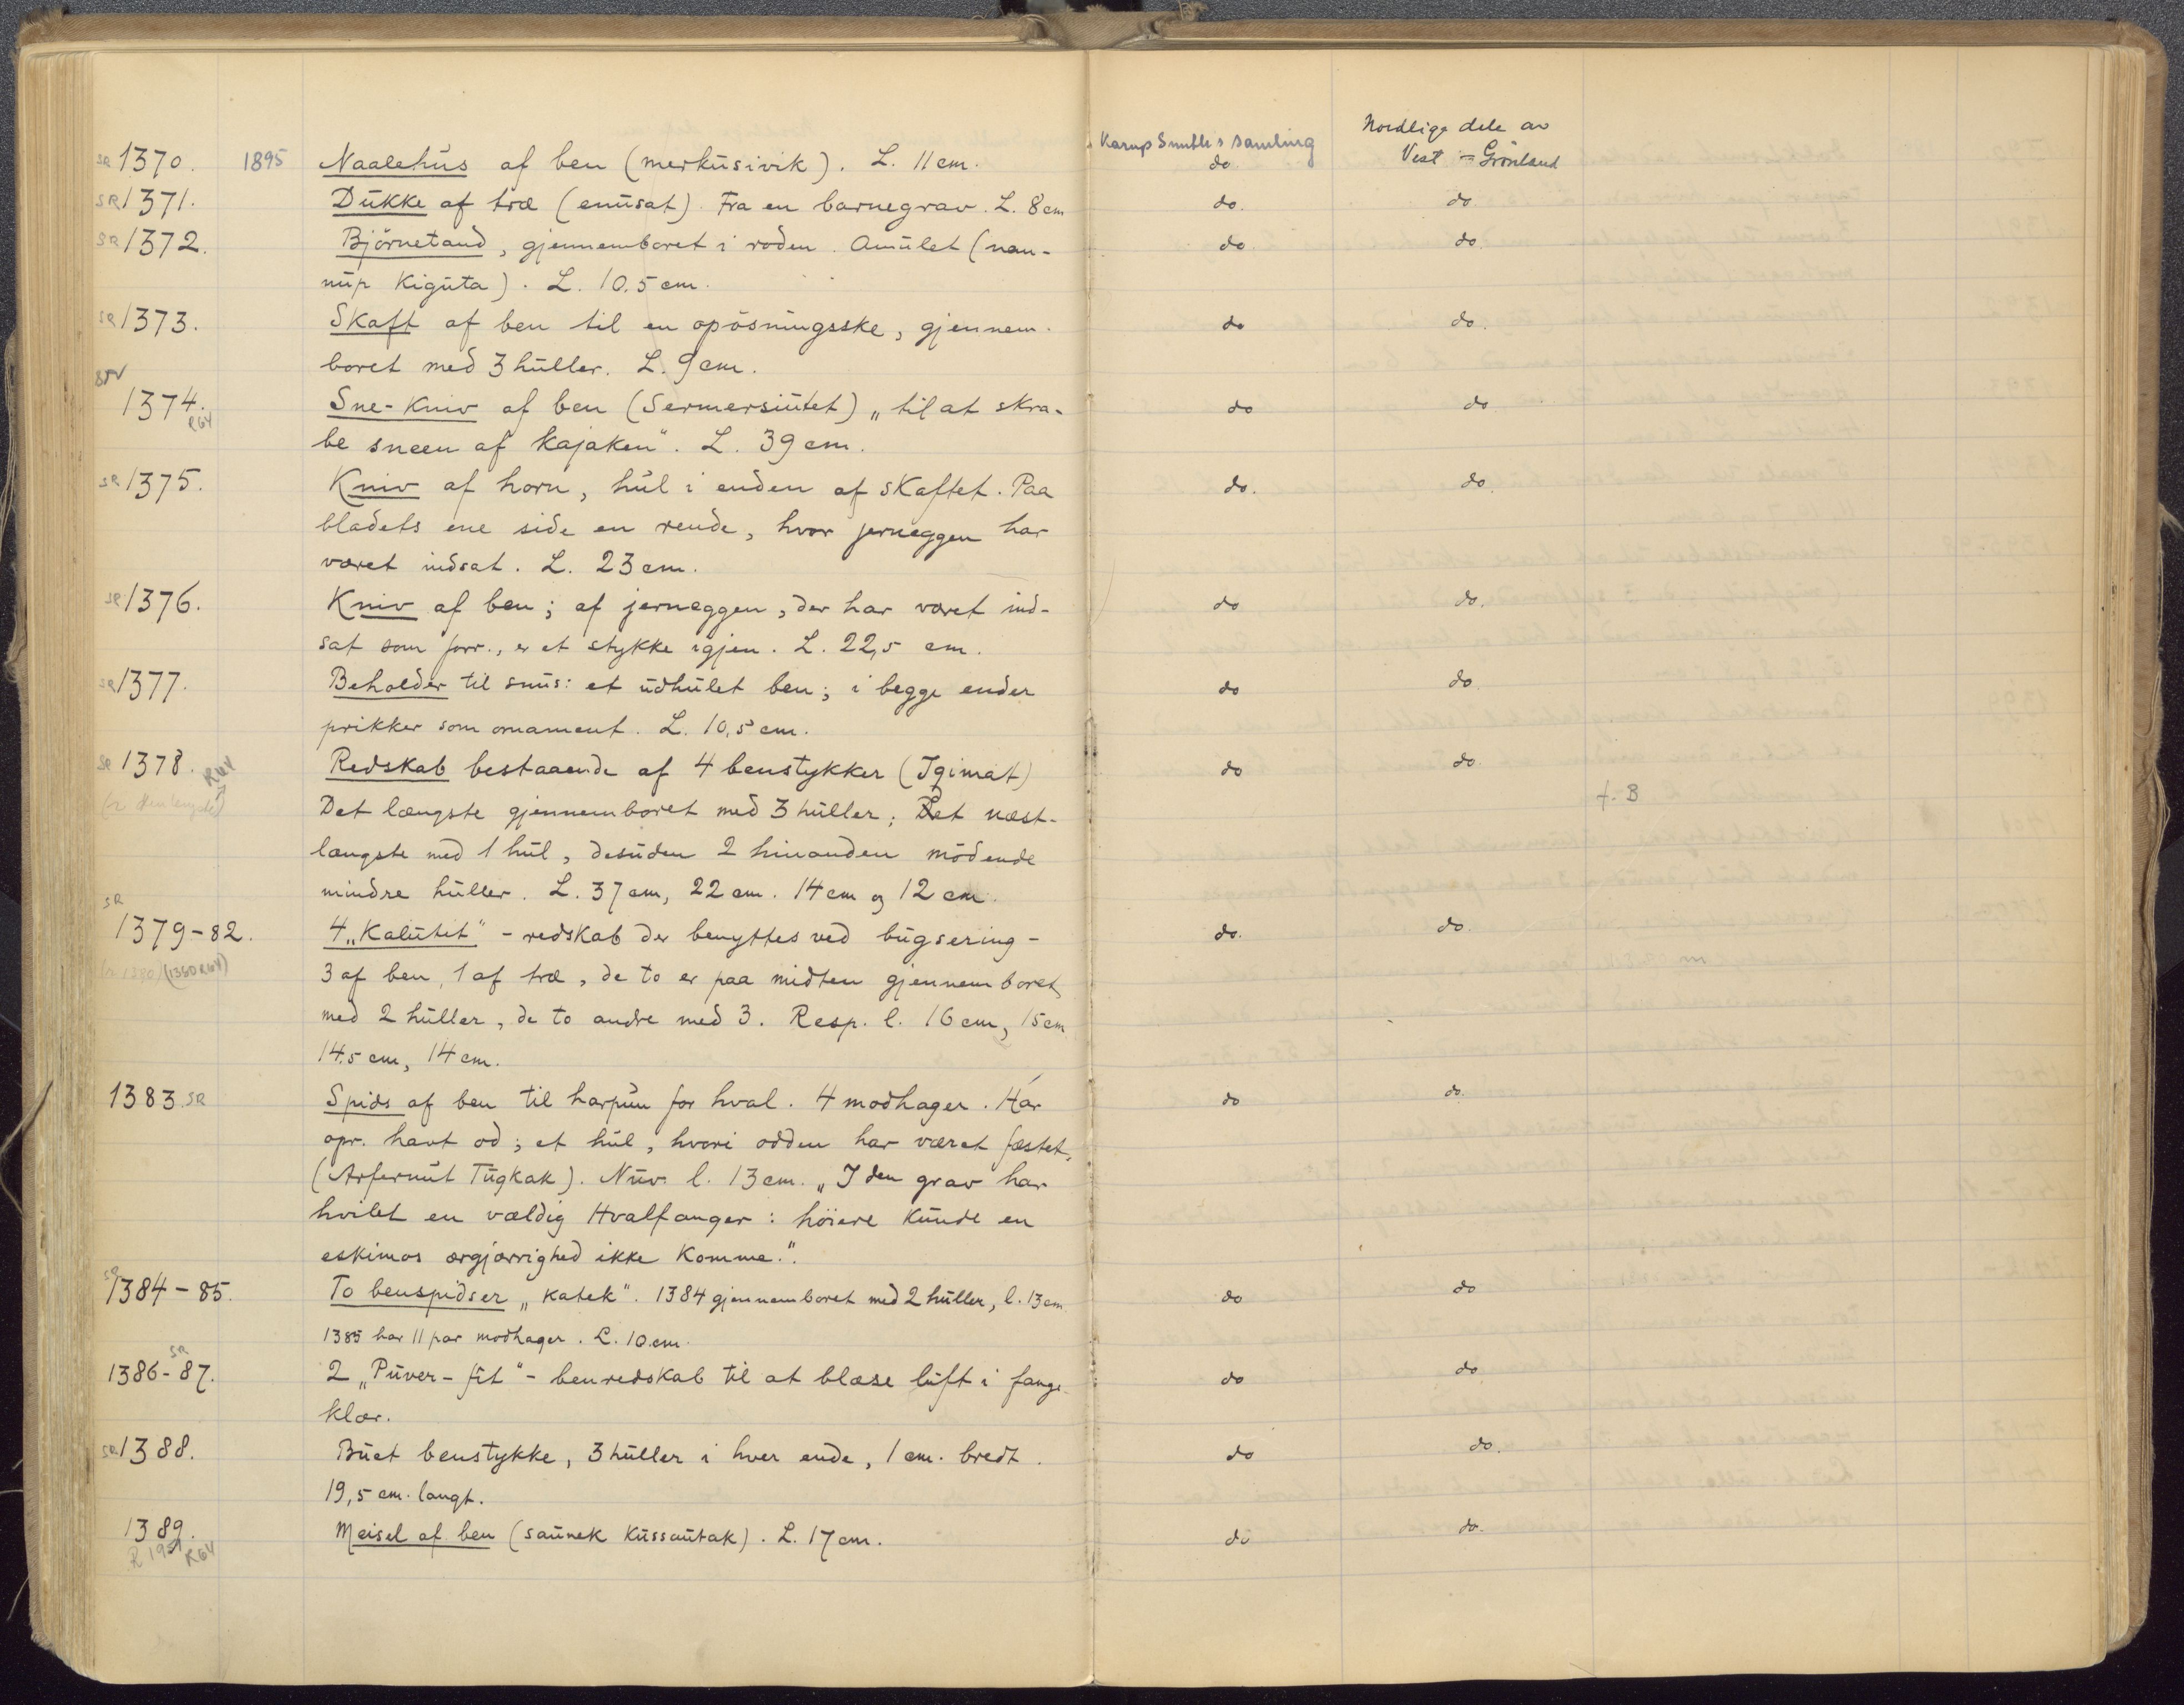 Karup Smiths samling
Nordlige dele av
SR 1370. 1895 Naalehus af ben (merkusivik). L. 11 cm. do. Vest-Grönland
SR 1371. Dukke af træ (enusat). Fra en barnegrav. L. 8 cm do. do.
SR 1372. Björnetand, gjennemboret i roden. Amulet (nan- do. do.
nup kiguta). L. 10.5 cm.
SR 1373. Skaft af ben til en opösningsske, gjennem- do do.
boret med 3 huller. L. 9 cm.
1374. R64 Sne-kniv af ben (Sermersiutet) „til at skra- do do
be sneen af kajaken". L. 39 cm.
SR 1375. Kniv af horn, hul i enden af skaftet. Paa do. do.
bladets ene side en rende, hvor jerneggen har
været indsat. L. 23 cm.
SR 1376. Kniv af ben; af jerneggen, der har været ind- do do.
sat som forr., er et stykke igjen. L. 22,5 cm.
SR 1377. Beholder til snus: et udhulet ben; i begge ender do do.
prikker som ornament. L. 10,5 cm.
SR 1378. R64 Redskab bestaaende af 4 benstykker (Iqimat) do do.
Det længste gjennemboret med 3 huller; Det næst- f. B
længste med 1 hul, desuden 2 hinanden mödende
mindre huller. L. 37 cm, 22 cm. 14 cm og 12 cm.
SR
1379-82. 4 „Kalutit" - redskab der benyttes ved bugsering - do. do.
(÷ 1380) (1380 R64) 3 af ben, 1 af træ, de to er paa midten gjennemboret
med 2 huller, de to andre med 3. Resp. l. 16 cm, 15 cm
14.5 cm, 14 cm.
1383 SR Spids af ben til harpun for hval. 4 modhager. Har do do.
opr. havt od; et hul, hvori odden har været fæstet.
(Arfernut Tugkak). Nuv. l. 13 cm. „I den grav har
hvilet en vældig Hvalfanger: höiere kunde en
eskimos ærgjærrighed ikke komme.".
SR
1384-85. To benspidser „katek". 1384 gjennemboret med 2 huller, l. 13 cm. do do
1385 har 11 par modhager. L. 10 cm.
SR
1386-87. 2 „Puver-fit" - benredskab til at blæse luft i fange- do do
klær.
SR 1388. Buet benstykke, 3 huller i hver ende, 1 cm. bredt. do do.
19,5 cm. langt.
1389. Meisel af ben (saunek kussautak). L. 17 cm. do do.
R64